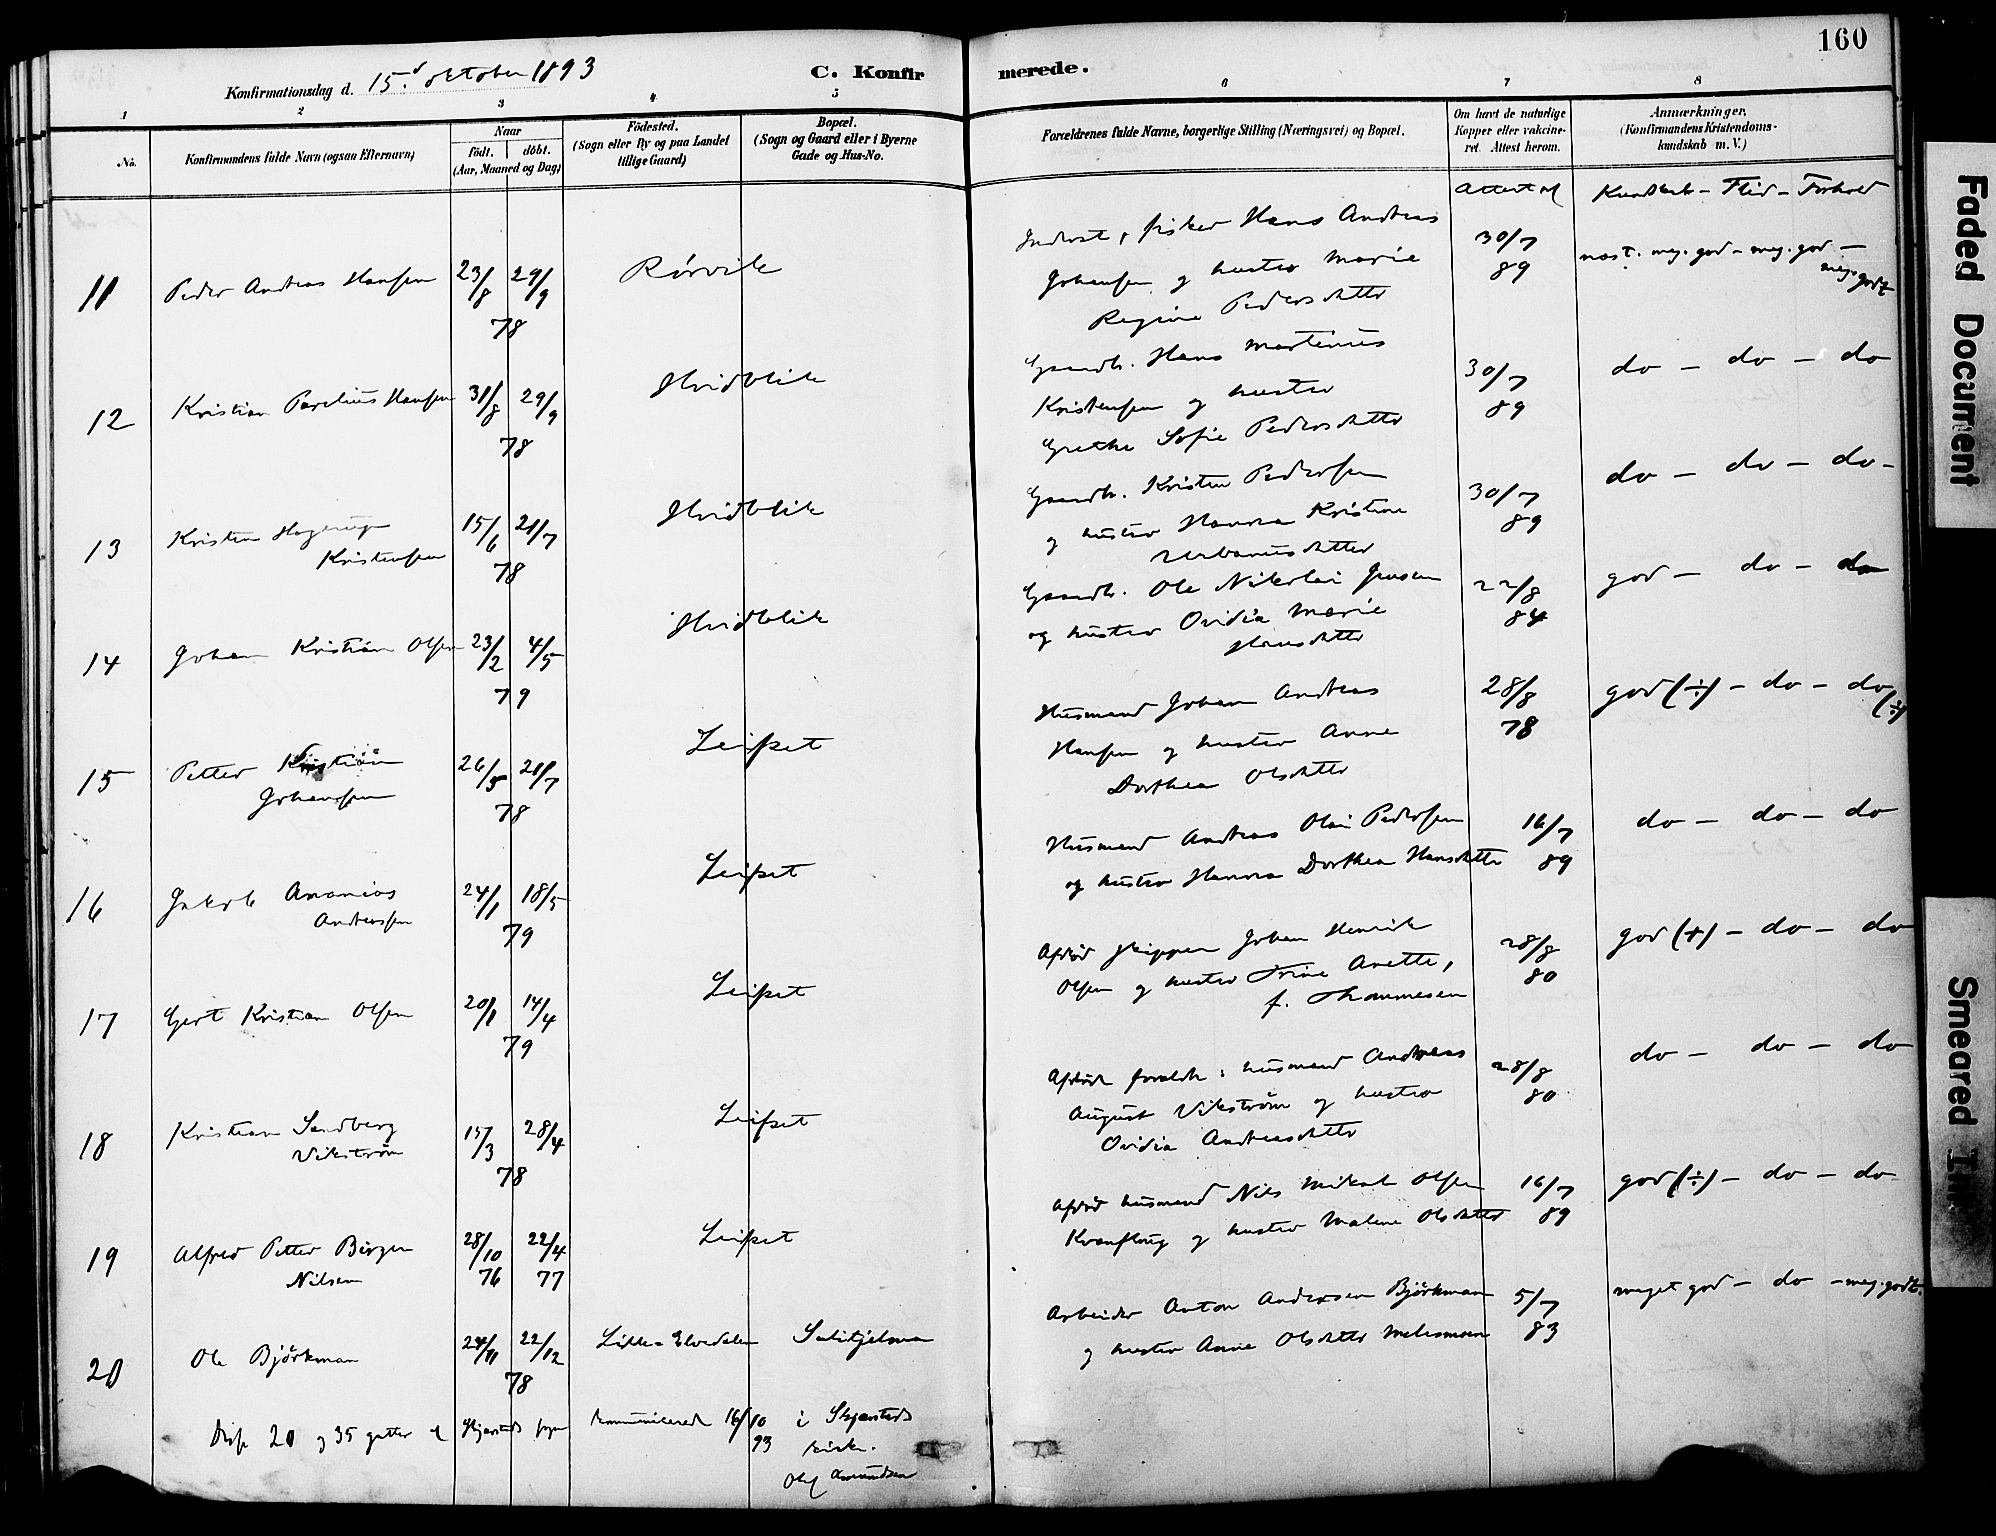 160
Konfirmationsdag d. 15d oktober 1893
C. Konfirmerede.
1 2 3 4 5 6 7 8
No.
Konfirmandens fulde Navn (ogsaa Efternavn)
Naar
født. døbt.
(Aar, Maaned og Dag)
Fødested.
(Sogn eller By og paa Landet
tillige Gaard)
Bopæl.
(Sogn og Gaard eller i Byerne
Gade og Hus-No.
Forældrenes fulde Navne, borgerlige Stilling (Næringsvei) og Bopæl.
Om havt de naturlige
Kopper eller vakcine-
ret. Attest herom.
Anmærkninger.
(Konfirmandens Kristendoms-
kundskab m. V.)
Attest af
Kundskab - Flid - Forhold
11 Peder Andreas Hansen 23/8 29/9 78 Rørvik
fisker Hans Andreas
Johansen og hustro Marie
Regine Pedersdatter
30/7 89
meg. god - meg. god -
meg. godt
12 Kristian Parelius Hansen 31/8 29/9 78 Hvidblik
Gaardb. Hans Martinus
Kristensen og hustro
Grethe Sofie Pedersdatter
30/7 89
do - do - do
13 Kristen Hagerup
Kristensen
15/6 21/7 78 Hvidblik
Gaardb. Kristen Pedersen
og hustro Hanna Kristine
Urbanusdatter
30/7 89
do - do - do -
14 Johan Kristian Olsen 23/2 4/5 79 Hvidblik
Gaardb. Ole Nikolai Jensen
og hustro Ovidia Marie
Hansdatter
22/8 84
god - do - do
15 Petter Kristian
Johansen
26/5 21/7 78 Leifset
Husmand Johan Andreas
Hansen og hustro Anne
Dorthea Olsdatter
28/8 78
god (÷) - do - do
(÷)
16 Jakob Ananias
Andreassen
24/1 18/5 79 Leifset
Husmand Andreas Olai Pedersen
og hustro Hanna Dorthea Hansdatter
16/7 89
do - do - do
17 Gert Kristian Olsen 20/1 14/4 79 Leifset
Afdød skipper Johan Henrik
Olsen og hustro Trine Anette,
f. Thommesen
28/8 80
god (+) - do - do
18 Kristian Sandberg
Vikstrøm
15/3 28/4 78 Leifset
Afdøde foreldr: husmand Andreas
August Vikstrøm og hustro
Ovidia Andreasdatter
28/8 80
do - do - do
19 Alfred Petter Birger
Nilsen
28/10 76 22/4 77 Leifset
Afdød husmand Nils Mikal Olsen
Kvænflaug og hustro Malene Olsdatter
16/7 89
god (÷) - do - do
20 Ole Björkman 24/11 22/12 78 Lille-Elvedalen Sulitjelma
Arbeider Anton Andersen Björkman
og hustro Anne Olsdatter
5/7 83
meget god - do - meg. godt.
Disse 20 og 35 gutter af Skjerstads sogn kommunicerede 16/10 93 i Skjerstads
kirke.
Olaf Amundsen
Faded Document
Smeared Ink